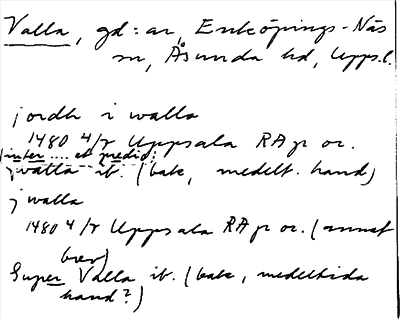 Valla, gd:ar, Enköpings-Näs
sn, Åsunda hd, Upps.l.
jordh i walla
1480 4/7 Uppsala RAp or.
(inter .... et predio:
j walla it. (bak, medelt. hand)
j walla
1480 4/7 Uppsala RAp or. (annat
brev)
Super Valla it. (bak, medeltida
hand?)